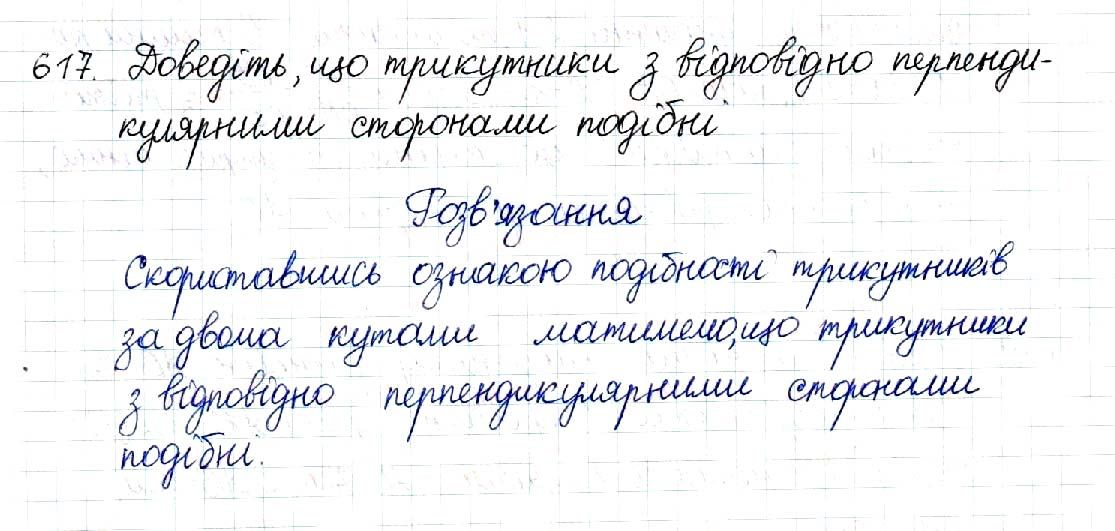 617. Доведіть, що трикутники з відповідно перпенди-
кулярними сторонами подібні
Розв'язання
Скориставшись ознакою подібності трикутників
за двома кутами матимемо, що трикутники
з відповідно перпендикулярними сторонами
подібні.